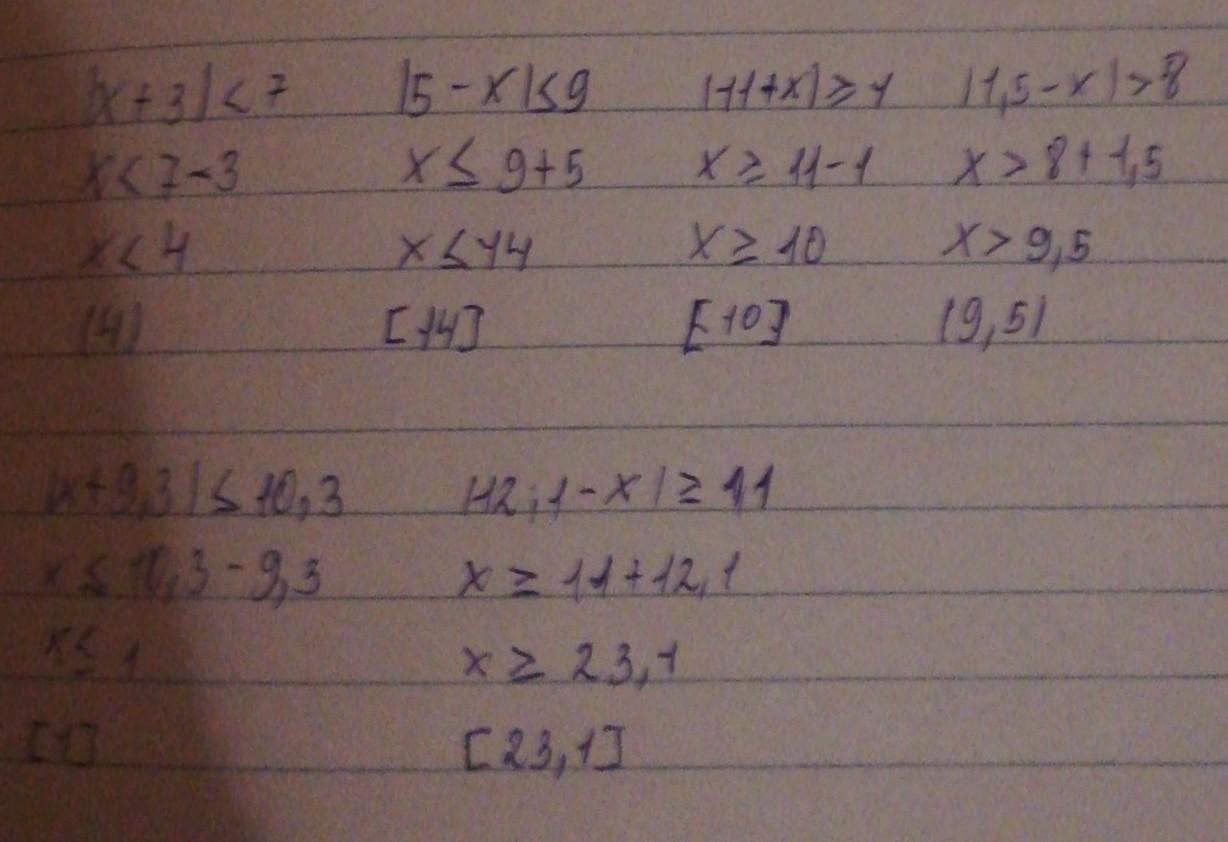 |x+3|<7 |5-x|≤9 |11+x|≥1 |1,5-x|>8
x<7-3 x≤9+5 x≥11-1 x>8+1,5
x<4 x≤14 x≥10 x>9,5
(4) [14] [10] (9,5)
|x+9,3|≤10,3 |12,1-x|≥11
x≤10,3-9,3 x≥11+12,1
x≤1 x≥23,1
[1] [23,1]